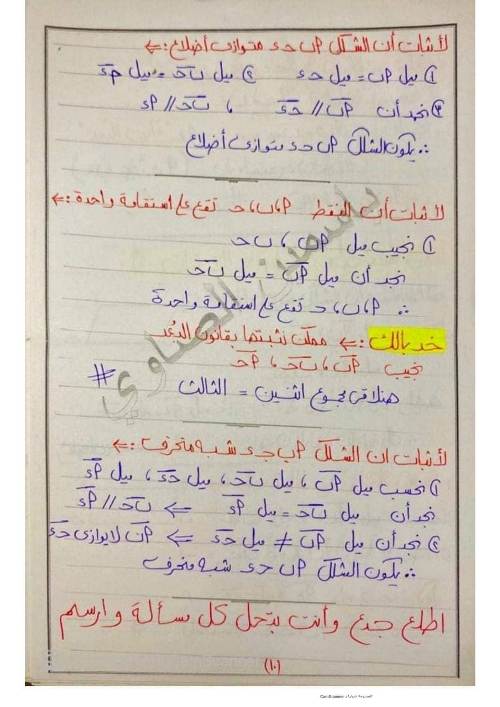 لأثبات أن الشكل أ ب ح ء متوازى أضلاع :⇐
① ميل أب = ميل حء ② ميل بح = ميل أء
③ نجد أن أب // حء ، بح // أء
∴ يكون الشكل أ ب ح ء متوازى أضلاع
لأثبات أن النقط أ ، ب ، ح تقع على استقامة واحدة :⇐
① نجيب ميل أب ، بح
نجد أن ميل أب = ميل بح
∴ أ ، ب ، ح تقع على استقامة واحدة
خد بالك :⇐ ممكن نثبتها بقانون البُعد
نجيب أب ، بح ، أح
هنلاقى مجموع اثنين = الثالث #
لأثبات ان الشكل أ ب ج ء شبه منحرف :⇐
① نحسب ميل أب ، ميل بح ، ميل حء ، ميل أء
نجد أن ميل بح = ميل أء ⇐ بح // أء
② نجد أن ميل أب ≠ ميل حء ⇐ أب لا يوازى حء
∴ يكون الشكل أ ب ح ء شبه منحرف
اطلع جدع وأنت بتحل كل مسألة وارسم
(١٠)
ياسمين الصاوي